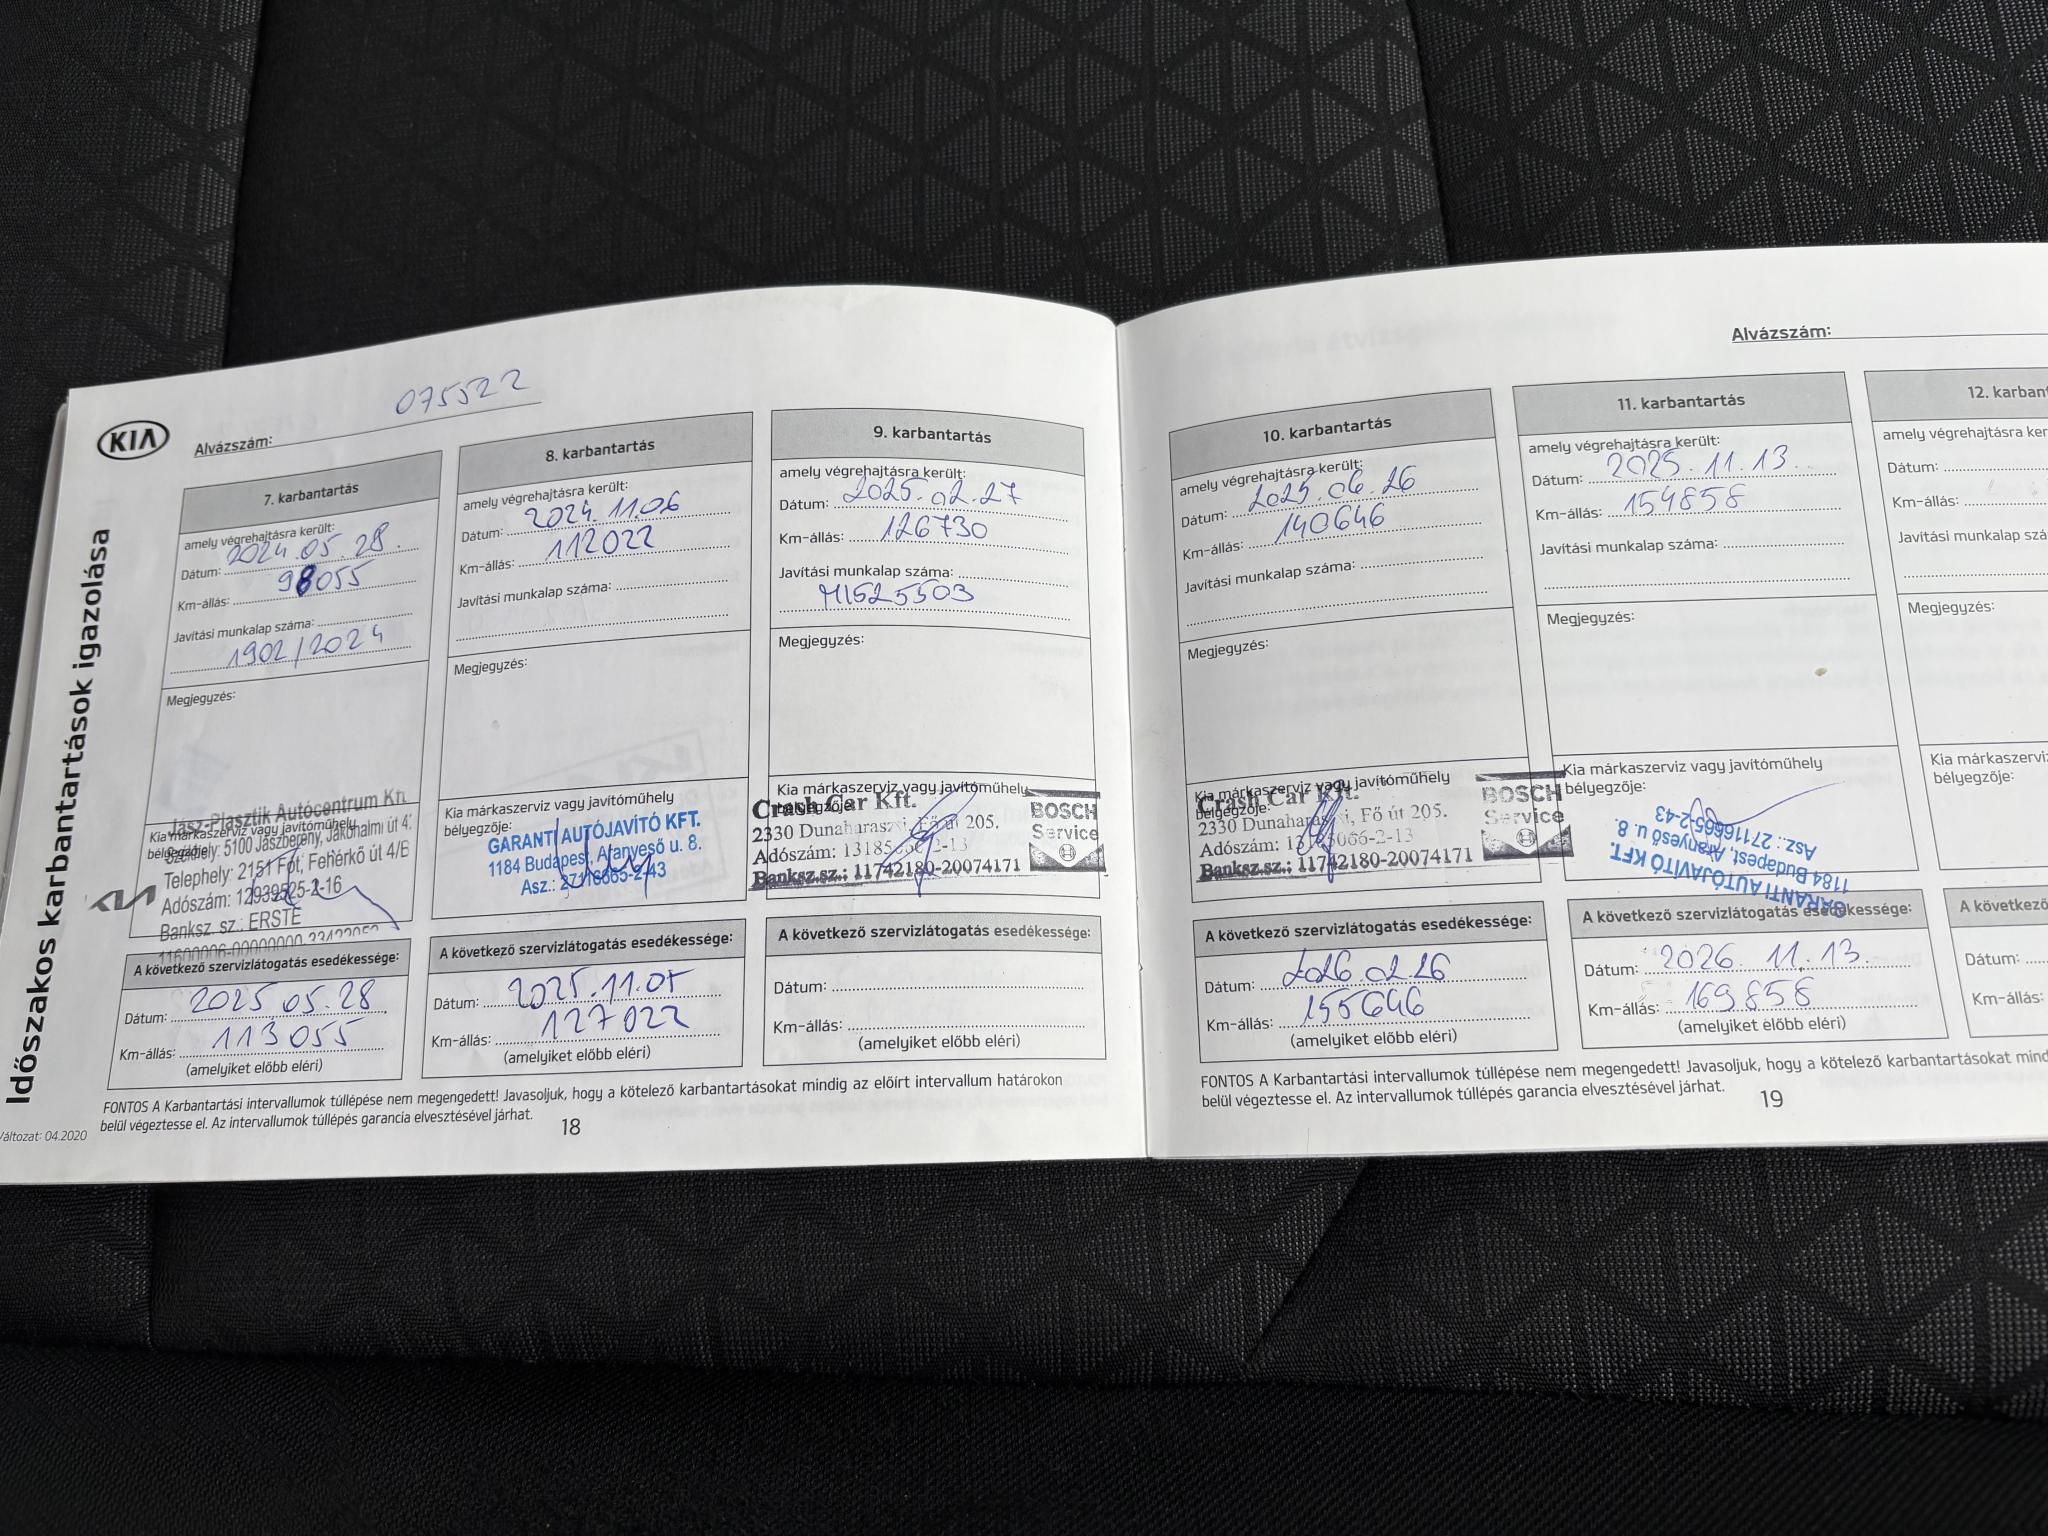 Időszakos karbantartások igazolása
KIA
Alvázszám: 075522
7. karbantartás
amely végrehajtásra került:
Dátum: 2024.05.28.
Km-állás: 98055
Javítási munkalap száma:
1902/2024
Megjegyzés:
Kia márkaszerviz vagy javítóműhely
bélyegzője:
Jász-Plasztik Autócentrum Kft.
Székhely: 5100 Jászberény, Jákóhalmi út 4.
Telephely: 2151 Fót, Fehérkő út 4/B
Adószám: 12939525-2-16
Banksz. sz.: ERSTE
A következő szervizlátogatás esedékessége:
Dátum: 2025.05.28.
Km-állás: 113055
(amelyiket előbb eléri)
8. karbantartás
amely végrehajtásra került:
Dátum: 2024.11.06
Km-állás: 112022
Javítási munkalap száma:
Megjegyzés:
Kia márkaszerviz vagy javítóműhely
bélyegzője:
GARANTI AUTÓJAVÍTÓ KFT.
1184 Budapest, Aranyeső u. 8.
Asz.: 27116665-2-43
A következő szervizlátogatás esedékessége:
Dátum: 2025.11.05
Km-állás: 127022
(amelyiket előbb eléri)
9. karbantartás
amely végrehajtásra került:
Dátum: 2025.02.27
Km-állás: 126730
Javítási munkalap száma:
M1525503
Megjegyzés:
Kia márkaszerviz vagy javítóműhely
bélyegzője:
Crash Car Kft.
2330 Dunaharaszti, Fő út 205.
Adószám: 13185066-2-13
Banksz.sz.: 11742180-20074171
BOSCH
Service
A következő szervizlátogatás esedékessége:
Dátum:
Km-állás:
(amelyiket előbb eléri)
FONTOS A Karbantartási intervallumok túllépése nem megengedett! Javasoljuk, hogy a kötelező karbantartásokat mindig az előírt intervallum határokon
belül végeztesse el. Az intervallumok túllépés garancia elvesztésével járhat.
Változat: 04.2020
18
Alvázszám:
10. karbantartás
amely végrehajtásra került:
Dátum: 2025.06.26
Km-állás: 140646
Javítási munkalap száma:
Megjegyzés:
Kia márkaszerviz vagy javítóműhely
bélyegzője:
Crash Car Kft.
2330 Dunaharaszti, Fő út 205.
Adószám: 13185066-2-13
Banksz.sz.: 11742180-20074171
BOSCH
Service
A következő szervizlátogatás esedékessége:
Dátum: 2026.02.26
Km-állás: 155646
(amelyiket előbb eléri)
11. karbantartás
amely végrehajtásra került:
Dátum: 2025.11.13.
Km-állás: 154858
Javítási munkalap száma:
Megjegyzés:
Kia márkaszerviz vagy javítóműhely
bélyegzője:
GARANTI AUTÓJAVÍTÓ KFT.
1184 Budapest, Aranyeső u. 8.
Asz.: 27116665-2-43
A következő szervizlátogatás esedékessége:
Dátum: 2026.11.13.
Km-állás: 169858
(amelyiket előbb eléri)
12. karban
amely végrehajtásra ker
Dátum:
Km-állás:
Javítási munkalap szá
Megjegyzés:
Kia márkaszerviz v
bélyegzője:
A következő
Dátum:
Km-állás:
FONTOS A Karbantartási intervallumok túllépése nem megengedett! Javasoljuk, hogy a kötelező karbantartásokat mind
belül végeztesse el. Az intervallumok túllépés garancia elvesztésével járhat.
19